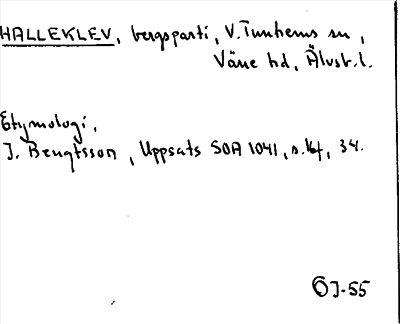 HALLEKLEV, bergsparti, V. Tunhems sn,
Väne hd, Älvsb. l.
Etymologi,
J. Bengtsson, Uppsats SOA 1041, s. 34.
ÖJ-55